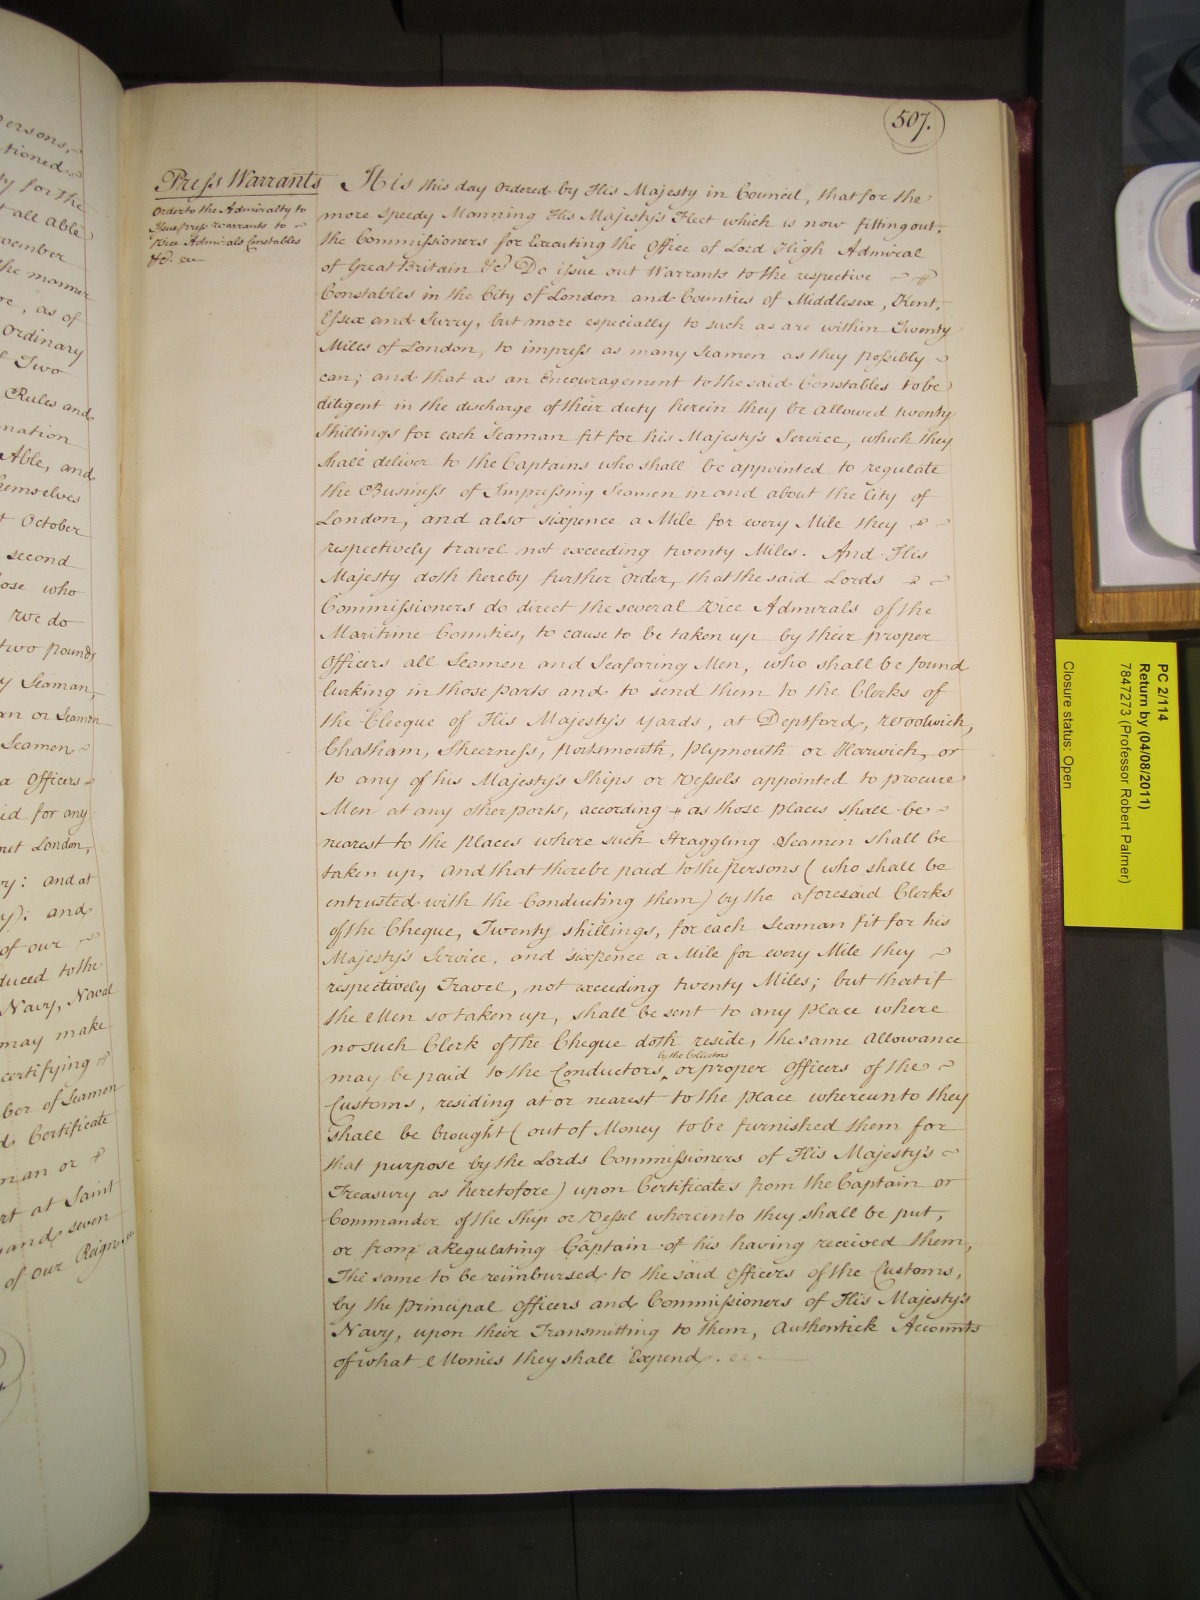 507.
Press Warrants
Order to the Admiralty to
Issue press warrants to
Vice Admirals Constables
&c.
It is this day Ordered by His Majesty in Council, that for the
more speedy Manning His Majesty's Fleet which is now fitting out,
the Commissioners for Executing the Office of Lord High Admiral
of Great Britain &c. Do issue out Warrants to the respective
Constables in the City of London and Counties of Middlesex, Kent,
Essex and Surry, but more especially to such as are within Twenty
Miles of London, to impress as many Seamen as they possibly
can; and that as an Encouragement to the said Constables to be
diligent in the discharge of their duty herein they be allowed twenty
Shillings for each Seaman fit for his Majesty's Service, which they
shall deliver to the Captains who shall be appointed to regulate
the Business of Impressing Seamen in and about the City of
London, and also sixpence a Mile for every Mile they
respectively travel not exceeding twenty Miles. And His
Majesty doth hereby further Order, that the said Lords
Commissioners do direct the several Vice Admirals of the
Maritime Counties, to cause to be taken up by their proper
Officers all Seamen and Seafaring Men, who shall be found
lurking in those parts and to send them to the Clerks of
the Cheque of His Majesty's Yards, at Deptford, Woolwich,
Chatham, Sheerness, Portsmouth, Plymouth or Harwich, or
to any of his Majesty's Ships or Vessels appointed to procure
Men at any other ports, according as those places shall be
nearest to the Places where such Straggling Seamen shall be
taken up, and that there be paid to the persons (who shall be
entrusted with the Conducting them) by the aforesaid Clerks
of the Cheque, Twenty shillings, for each Seaman fit for his
Majesty's Service, and sixpence a Mile for every Mile they
respectively Travel, not exceeding twenty Miles; but that if
the Men so taken up, shall be sent to any Place where
no such Clerk of the Cheque doth reside, the same Allowance
may be paid to the Conductors by the Collectors or proper Officers of the
Customs, residing at or nearest to the Place whereunto they
shall be brought (out of Money to be furnished them for
that purpose by the Lords Commissioners of His Majesty's
Treasury as heretofore) upon Certificates from the Captain or
Commander of the Ship or Vessel whereinto they shall be put,
or from a Regulating Captain of his having received them,
The same to be reimbursed to the said Officers of the Customs,
by the Principal Officers and Commissioners of His Majesty's
Navy, upon their Transmitting to them, Authentick Accounts
of what Monies they shall Expend.
ersons,
tioned
ty for the
t all able
vember
the manner
, as of
Ordinary
Two
Rules and
nation
Able, and
hemselves
October
second
ose who
we do
two pounds
y Seaman,
an or Seamen
Seamen
a Officers
id for any
out London,
ry: and at
y): and
of our
duced to the
Navy, Naval
may make
certifying
ber of Seamen
d Certificate
man or
rt at Saint
and seven
of our Reign
PC 2/114
Return by (04/08/2011)
7847273 (Professor Robert Palmer)
Closure status: Open